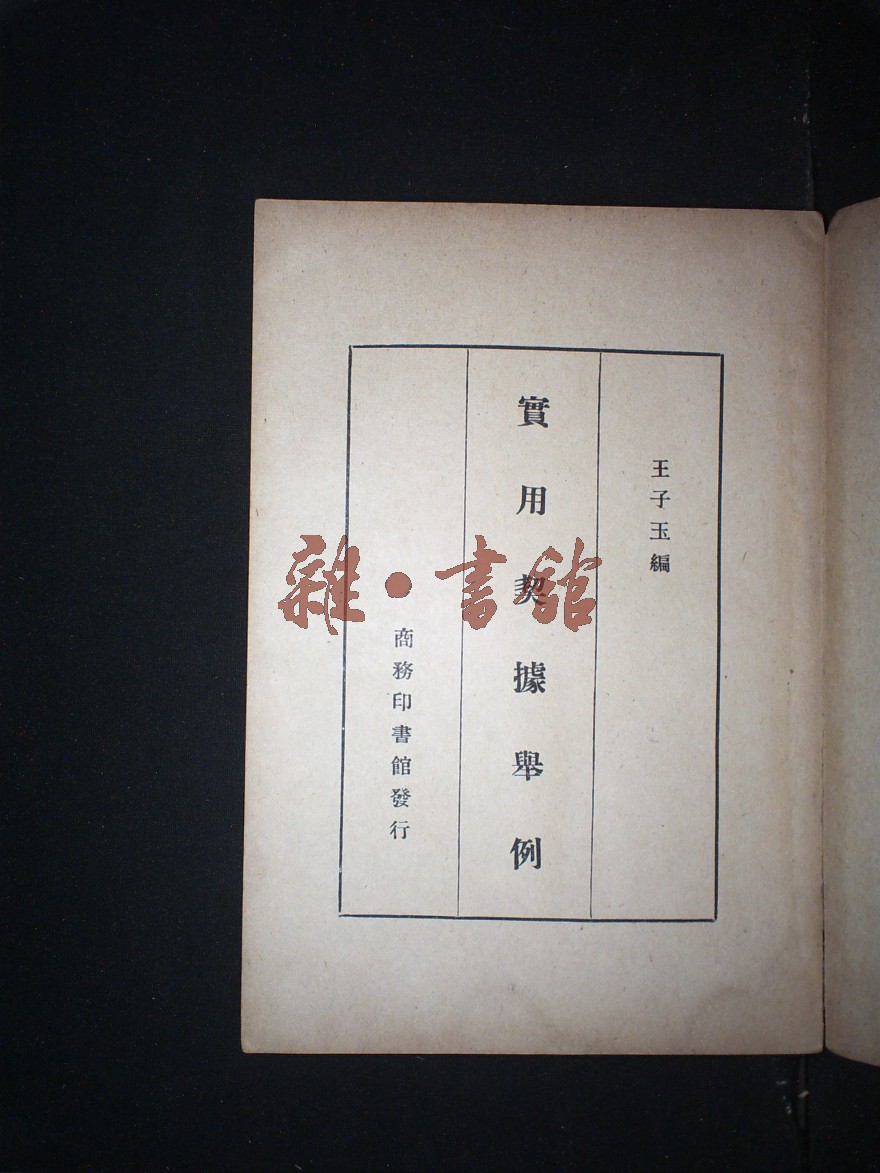 王子玉編
實用契據舉例
商務印書館發行
雜·書館